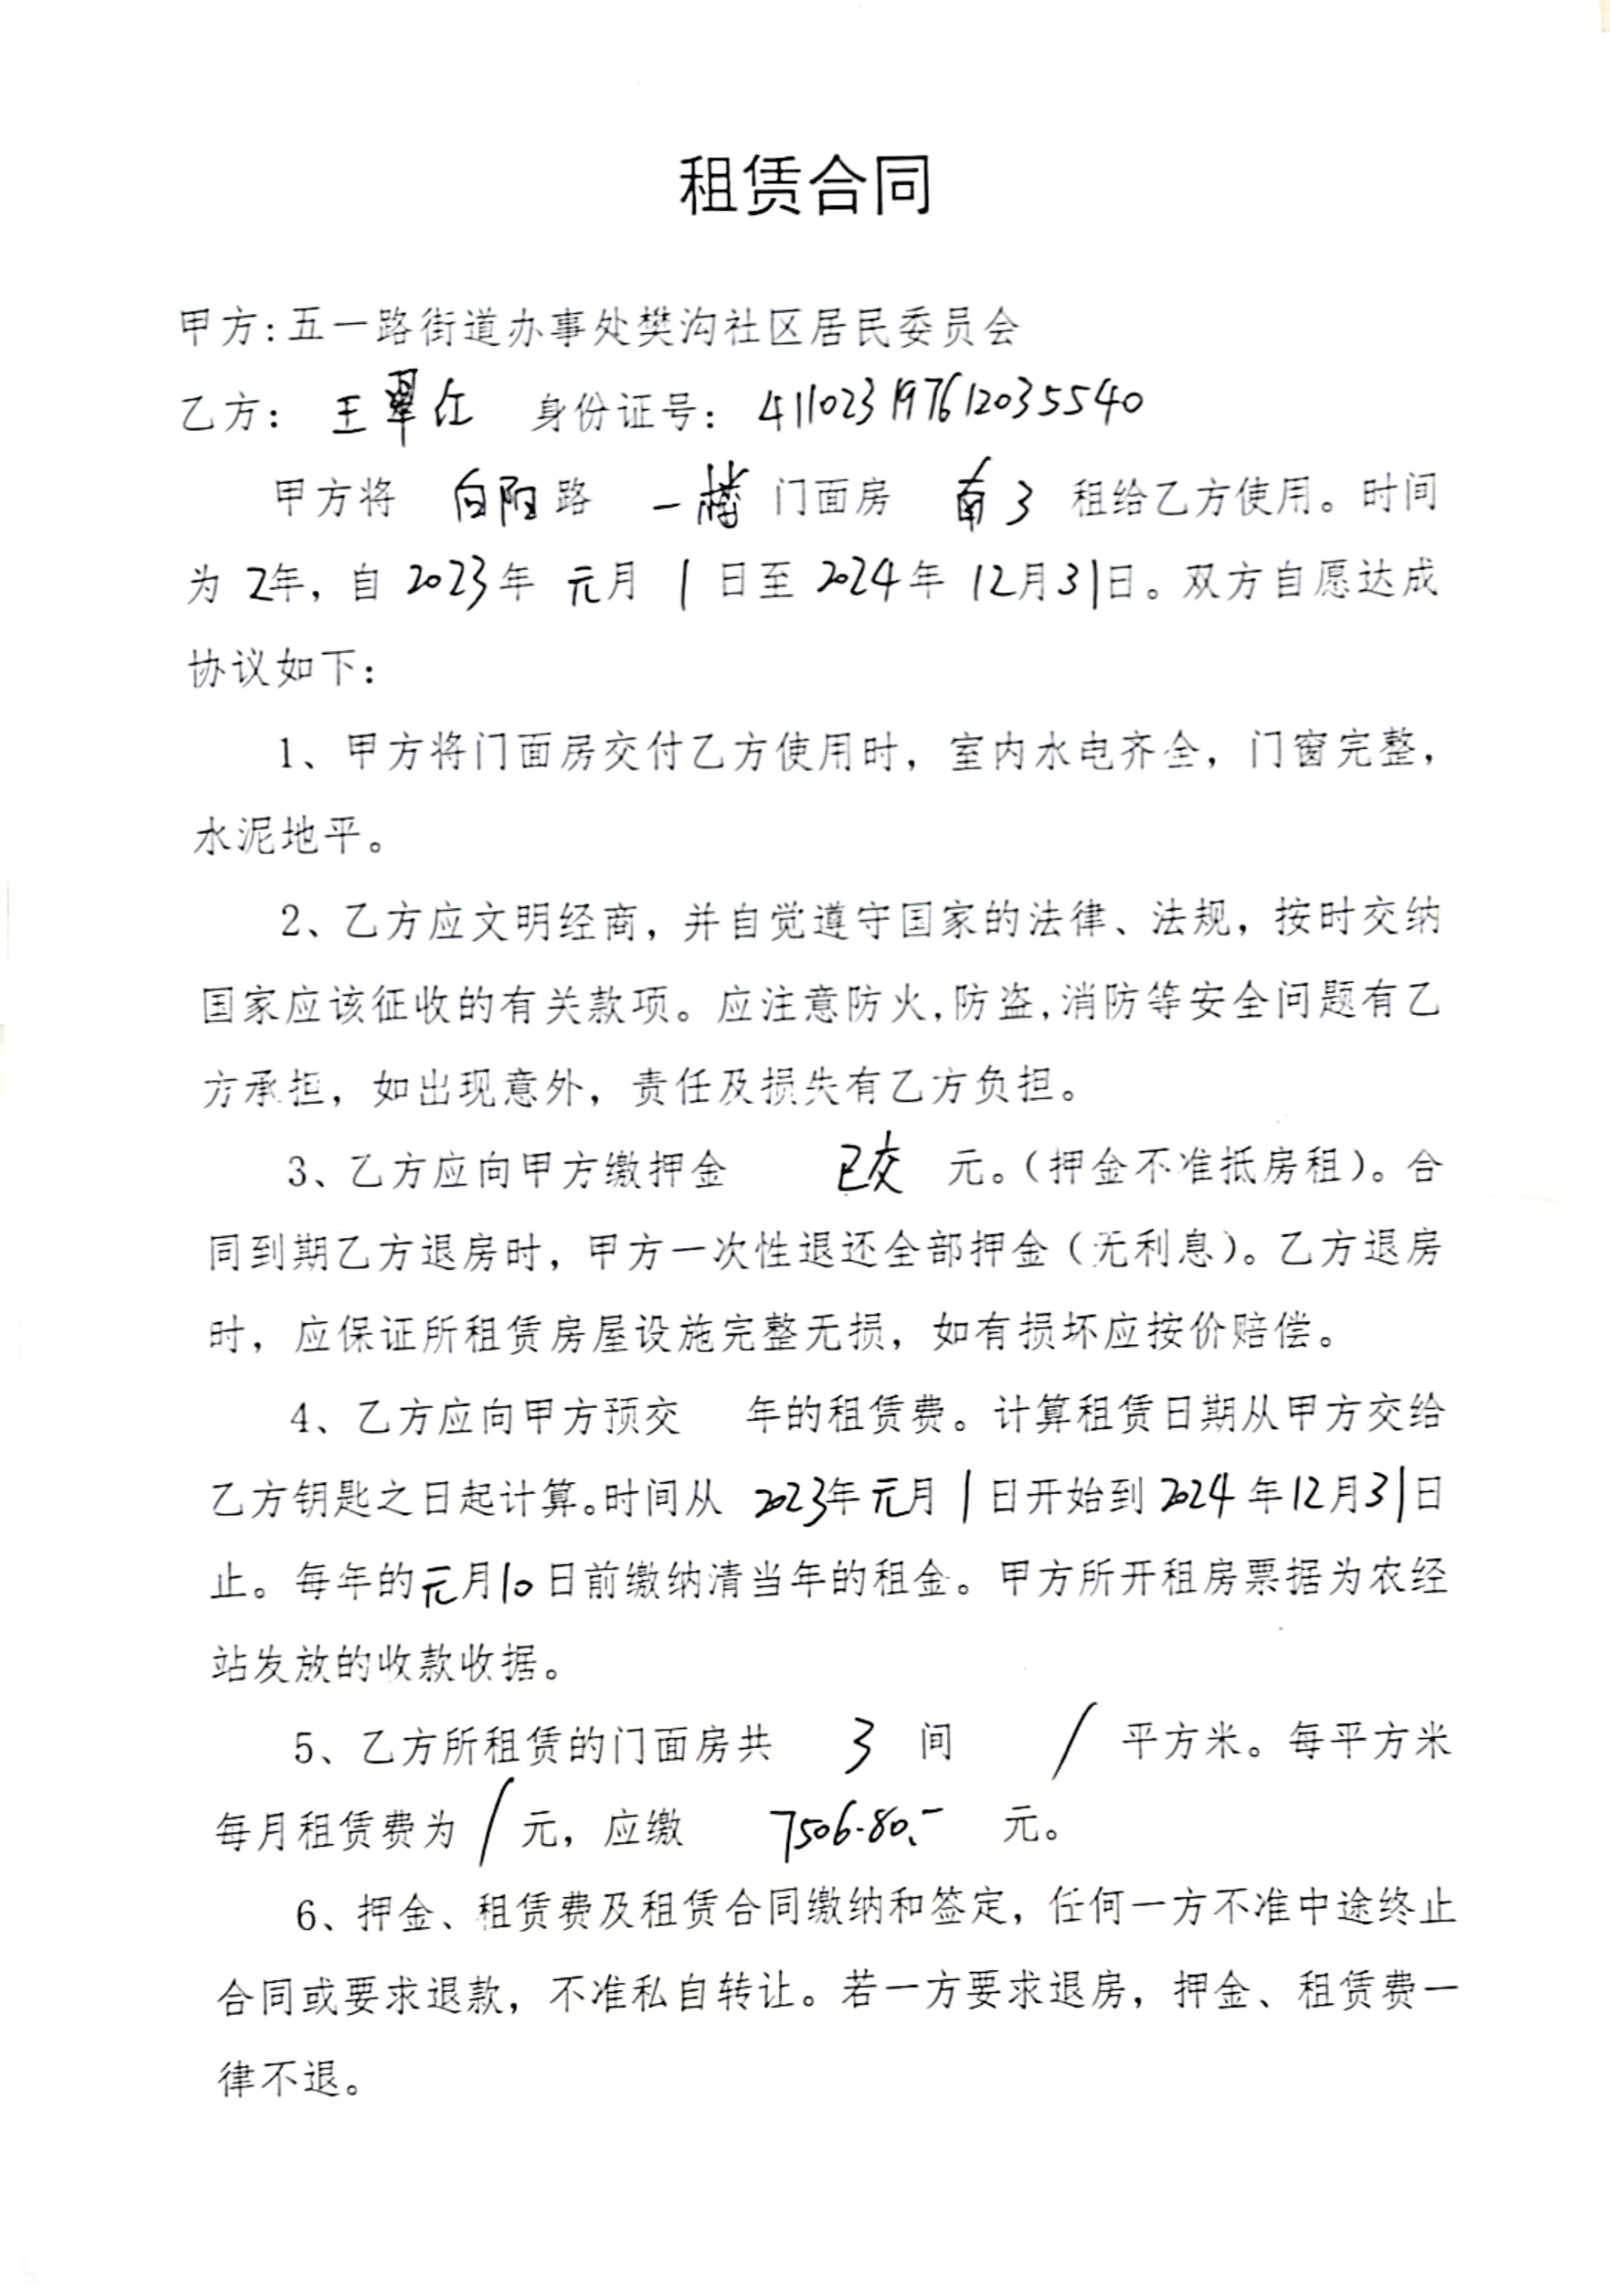 租赁合同
甲方：五一路街道办事处樊沟社区居民委员会
乙方： 王翠红 身份证号： 411023197612035540
甲方将 向阳路 一楼 门面房 南3 租给乙方使用。时间
为 2年，自 2023年 元月 1 日至 2024年 12月31日。双方自愿达成
协议如下：
1、甲方将门面房交付乙方使用时，室内水电齐全，门窗完整，
水泥地平。
2、乙方应文明经商，并自觉遵守国家的法律、法规，按时交纳
国家应该征收的有关款项。应注意防火,防盗,消防等安全问题有乙
方承担，如出现意外，责任及损失有乙方负担。
3、乙方应向甲方缴押金 已交 元。（押金不准抵房租）。合
同到期乙方退房时，甲方一次性退还全部押金（无利息）。乙方退房
时，应保证所租赁房屋设施完整无损，如有损坏应按价赔偿。
4、乙方应向甲方预交 年的租赁费。计算租赁日期从甲方交给
乙方钥匙之日起计算。时间从 2023年元月 1 日开始到 2024 年12月31日
止。每年的元月10日前缴纳清当年的租金。甲方所开租房票据为农经
站发放的收款收据。
5、乙方所租赁的门面房共 3 间 / 平方米。每平方米
每月租赁费为 / 元，应缴 7506.80.- 元。
6、押金、租赁费及租赁合同缴纳和签定，任何一方不准中途终止
合同或要求退款，不准私自转让。若一方要求退房，押金、租赁费一
律不退。